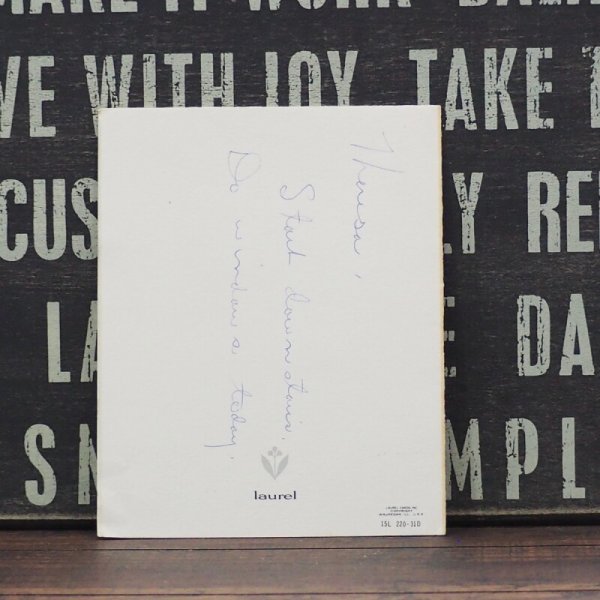 MAKE IT WORK
VE WITH JOY, TAKE
CUS
LY REL
LA
E DA
SN
MPL
Theresa,
Start downstairs.
Do windows today.
laurel
15L 226-31D